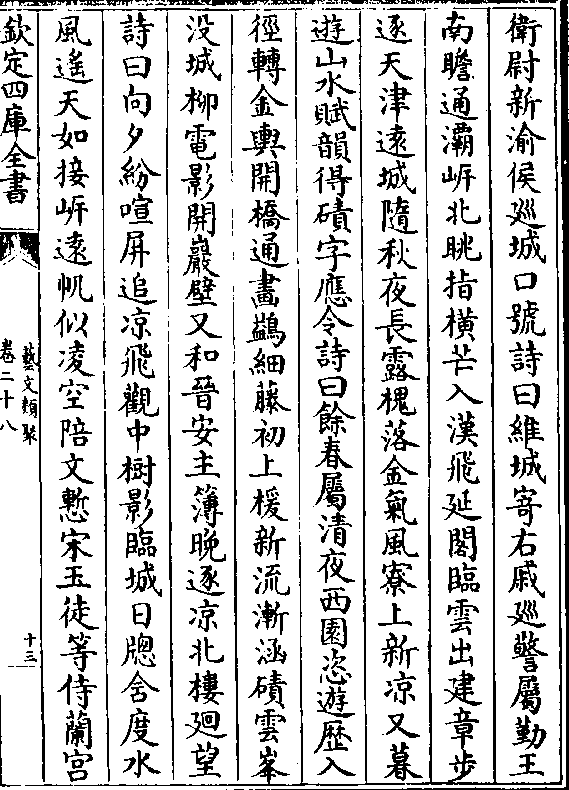 衛尉新渝侯廵城口號詩曰維城寄右戚廵警屬勤王
南瞻通灞岸北眺指横芒入漢飛延閣臨雲出建章步
逐天津逺城隨秋夜長露槐落金氣風寮上新凉又暮
遊山水賦韻得磧字應令詩曰餘春屬清夜西園恣遊歴入
徑轉金輿開橋通畫鷁細藤初上楥新流漸涵磧雲峯
没城柳電影開巖壁又和晉安主簿晚逐凉北樓廻望
詩曰向夕紛喧屏追凉飛觀中樹影臨城日牕舍度水
風遥天如接岸逺帆似凌空陪文慙宋玉徒等侍蘭宫
欽定四庫全書
藝文類聚
卷二十八
十三